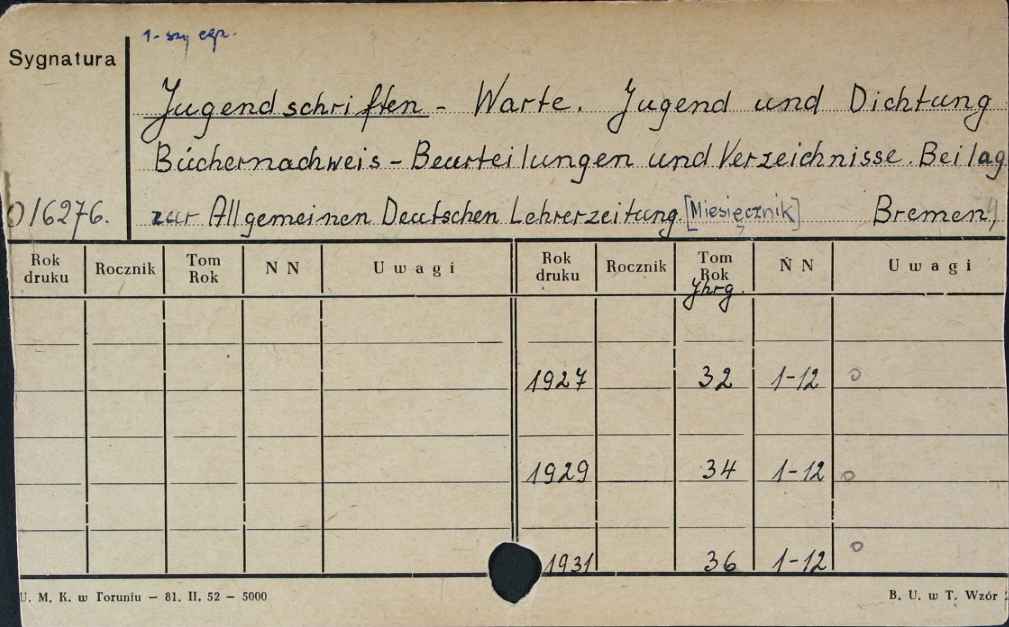 1-szy egz.
Sygnatura
Jugendschriften - Warte. Jugend und Dichtung
Büchernachweis - Beurteilungen und Verzeichnisse. Beilag
O/6276. zur Allgemeinen Deutschen Lehrerzeitung. [Miesięcznik] Bremen,
Rok druku Rocznik Tom Rok N N Uwagi Rok druku Rocznik Tom Rok N N Uwagi
Jhrg.
1927 32 1-12
1929 34 1-12
1931 36 1-12
U. M. K. w Toruniu — 81. II. 52 — 5000 B. U. w T. Wzór